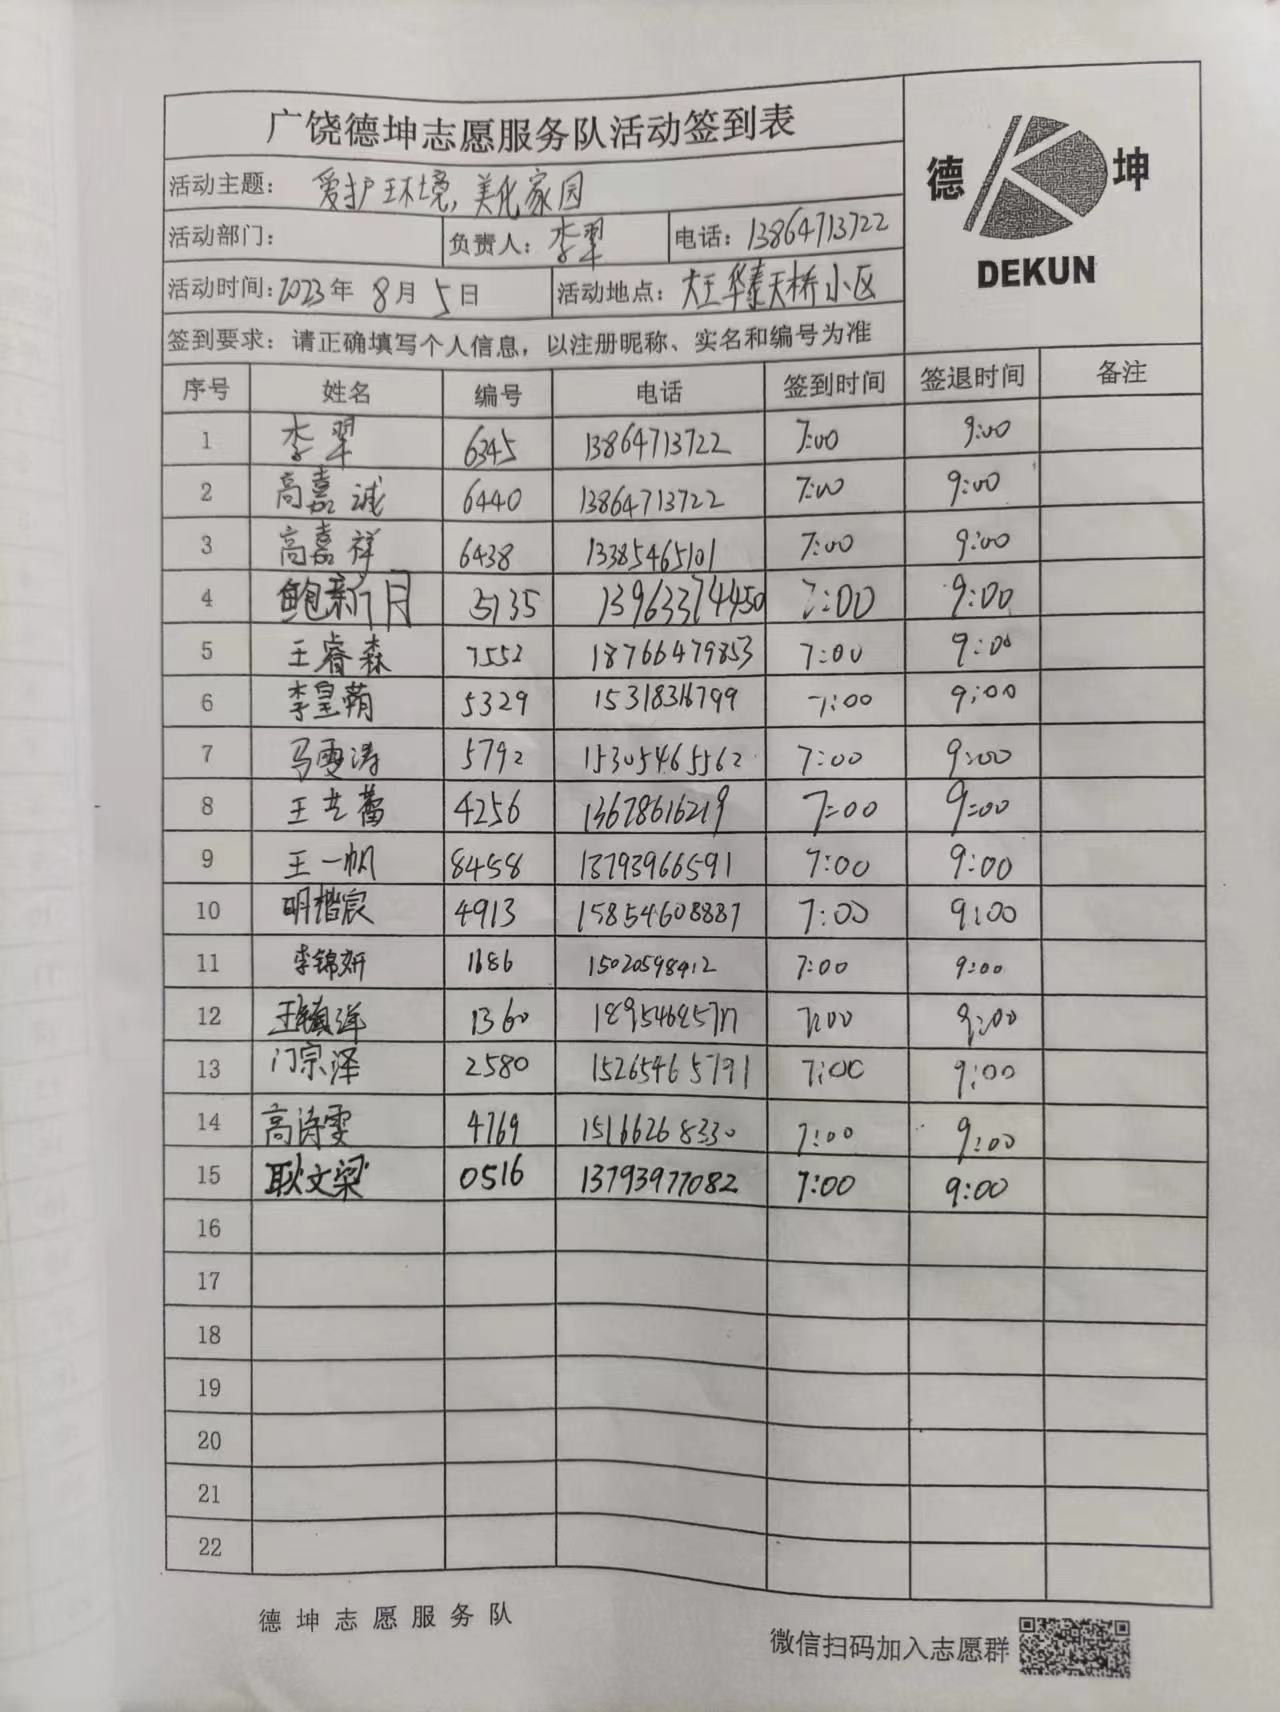 广饶德坤志愿服务队活动签到表
德 坤
DEKUN
活动主题: 爱护环境,美化家园
活动部门: 负责人: 李翠 电话: 13864713722
活动时间: 2023年 8月 5日 活动地点: 大王华泰天桥小区
签到要求: 请正确填写个人信息,以注册昵称、实名和编号为准
序号 姓名 编号 电话 签到时间 签退时间 备注
1 李翠 6345 13864713722 7:00 9:00
2 高嘉诚 6440 13864713722 7:00 9:00
3 高嘉祥 6438 13385465101 7:00 9:00
4 鲍新月 3135 13963374450 7:00 9:00
5 王睿森 7552 18766479853 7:00 9:00
6 李皇萳 5329 15318316799 7:00 9:00
7 马雯涛 5792 15305465562 7:00 9:00
8 王艺蕾 4256 13678616219 7:00 9:00
9 王一帆 8458 13793966591 7:00 9:00
10 明楷宸 4913 15854608887 7:00 9:00
11 李锦妍 1686 15020598412 7:00 9:00
12 王镇洋 1360 7:00 9:00
13 门宗泽 2580 15265465791 7:00 9:00
14 高涛雯 4769 15166268330 7:00 9:00
15 耿文梁 0516 13793977082 7:00 9:00
16
17
18
19
20
21
22
德坤志愿服务队
微信扫码加入志愿群